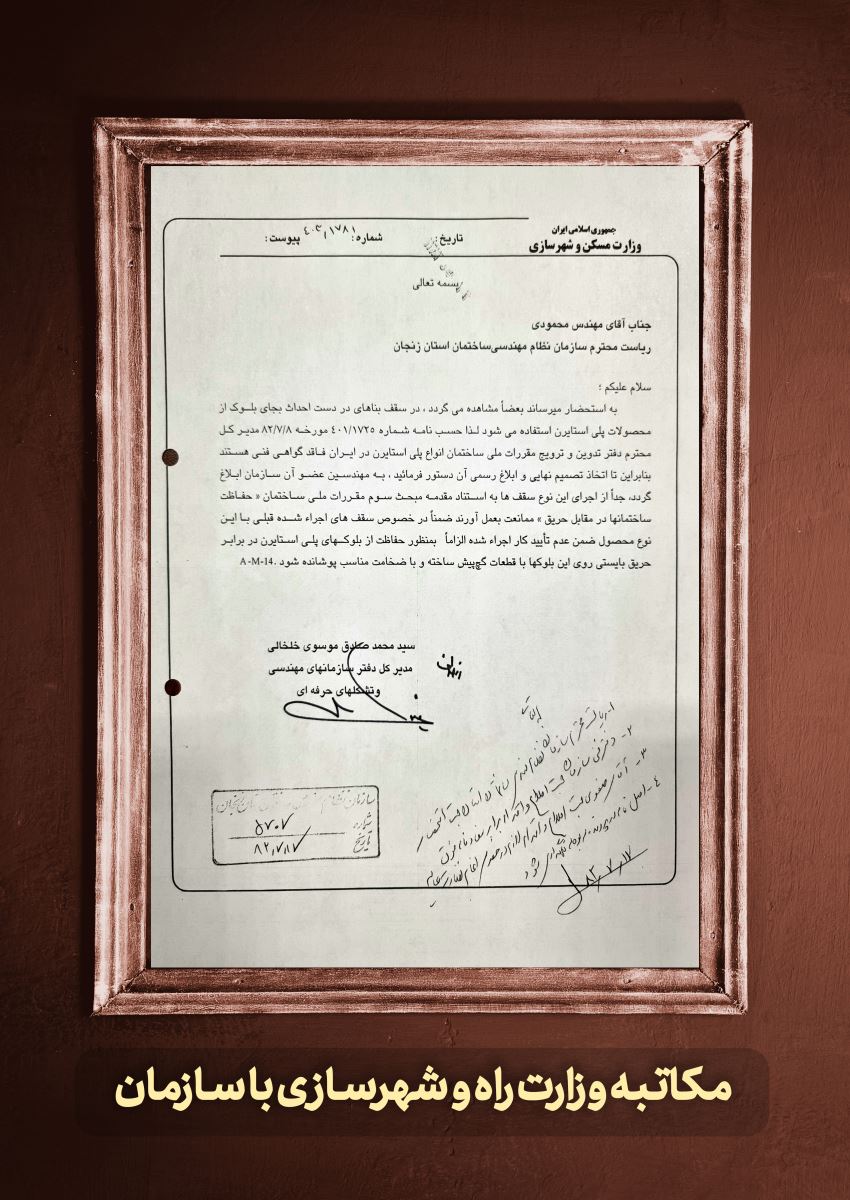 جمهوری اسلامی ایران
وزارت مسکن و شهرسازی
تاریخ
شماره: ۴۰۳/۱۷۸۱
پیوست:
بسمه تعالی
جناب آقای مهندس محمودی
ریاست محترم سازمان نظام مهندسی‌ساختمان استان زنجان
سلام علیکم ؛
به استحضار میرساند بعضاً مشاهده می گردد ، در سقف بناهای در دست احداث بجای بلوک از
محصولات پلی استایرن استفاده می شود لذا حسب نامه شماره ٤٠١/١٧٢٥ مورخه ٨٢/٧/٨ مدیر کل
محترم دفتر تدوین و ترویج مقررات ملی ساختمان انواع پلی استایرن در ایران فاقد گواهی فنی هستند
بنابراین تا اتخاذ تصمیم نهایی و ابلاغ رسمی آن دستور فرمائید ، به مهندسین عضو آن سازمان ابلاغ
گردد، جداً از اجرای این نوع سقف ها به استناد مقدمه مبحث سوم مقررات ملی ساختمان « حفاظت
ساختمانها در مقابل حریق » ممانعت بعمل آورند ضمناً در خصوص سقف های اجراء شده قبلی با این
نوع محصول ضمن عدم تأیید کار اجراء شده الزاماً بمنظور حفاظت از بلوکهای پلی استایرن در برابر
حریق بایستی روی این بلوکها با قطعات گچ‌پیش ساخته و با ضخامت مناسب پوشانده شود .A-M-14
سید محمد صادق موسوی خلخالی
مدیر کل دفتر سازمانهای مهندسی
وتشکلهای حرفه ای
سازمان نظام
شماره ۵۷۰۷
تاریخ ۸۲/۷/۱۷
۸۲/۷/۱۷
مکاتبه وزارت راه و شهرسازی با سازمان